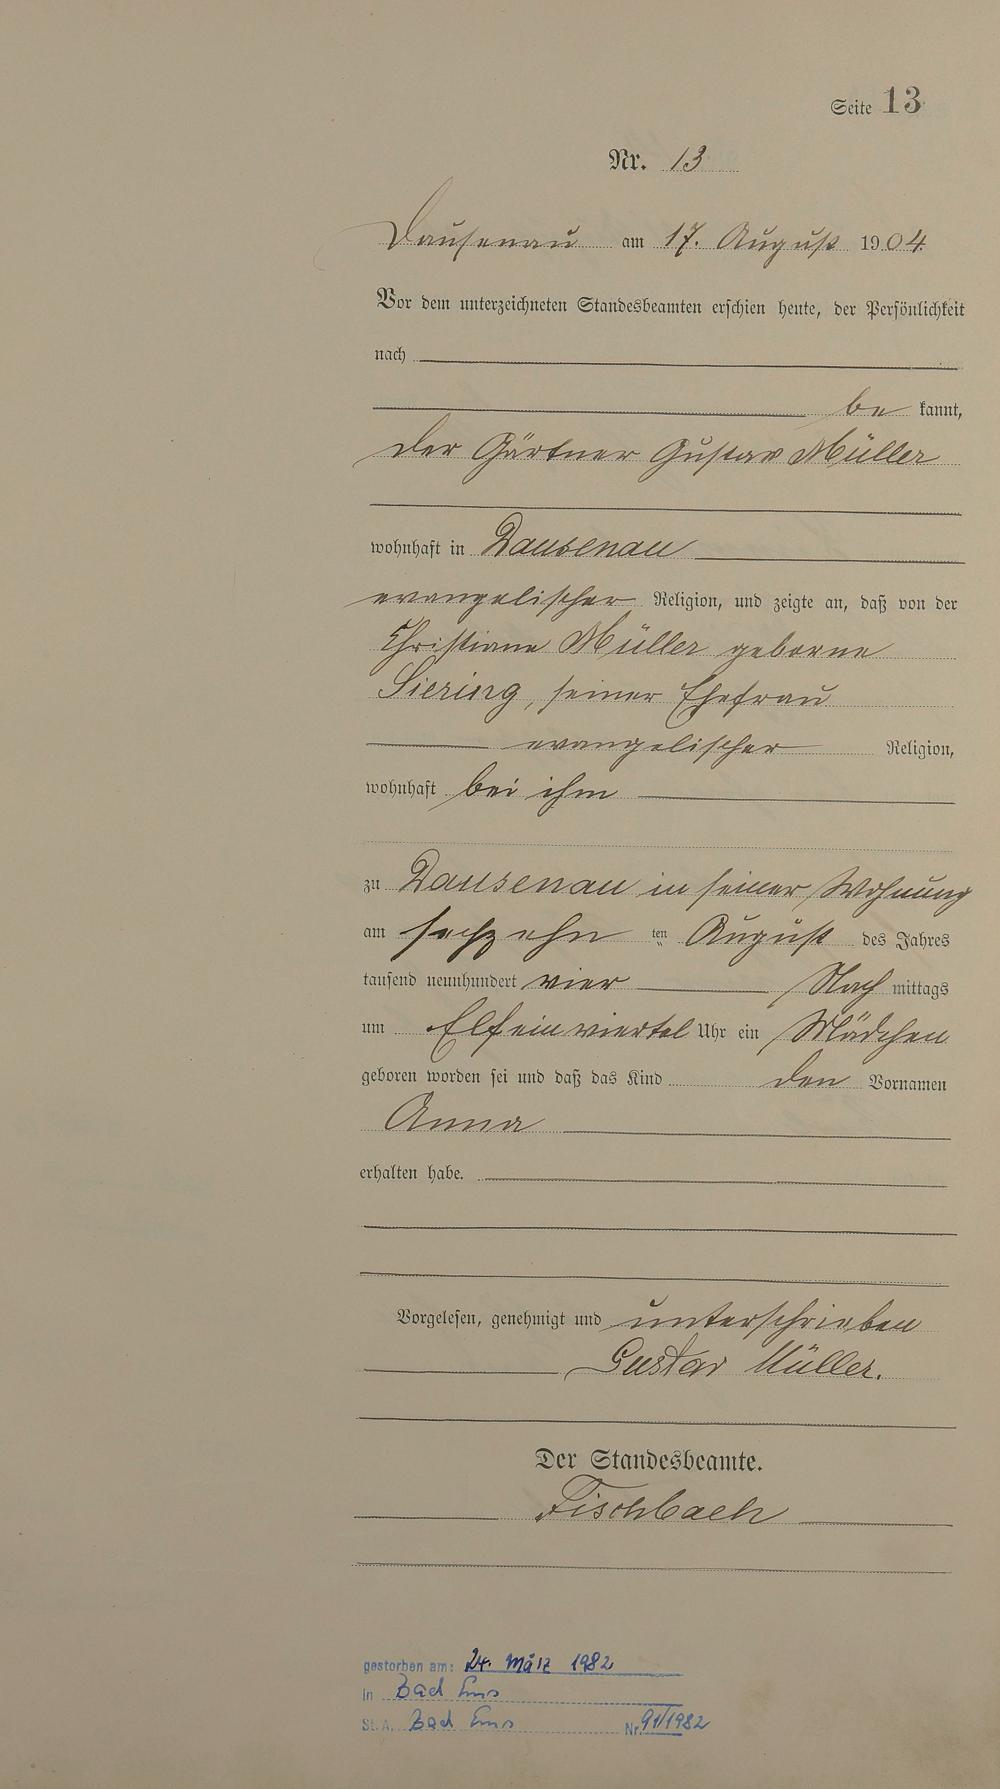 Seite 13
Nr. 13
Dausenau am 17. August 1904
Vor dem unterzeichneten Standesbeamten erschien heute, der Persönlichkeit
nach
be kannt,
der Gärtner Gustav Müller
wohnhaft in Dausenau
evangelischer Religion, und zeigte an, daß von der
Christiane Müller geborne
Siering, seiner Ehefrau
evangelischer Religion,
wohnhaft bei ihm
zu Dausenau in seiner Wohnung
am sechzehn ten August des Jahres
tausend neunhundert vier Nach mittags
um Elf ein viertel Uhr ein Mädchen
geboren worden sei und daß das Kind den Vornamen
Anna
erhalten habe.
Vorgelesen, genehmigt und unterschrieben
Gustav Müller.
Der Standesbeamte.
Fischbach
gestorben am: 24. März 1982
in Bad Ems
St. A. Bad Ems Nr. 91/1982